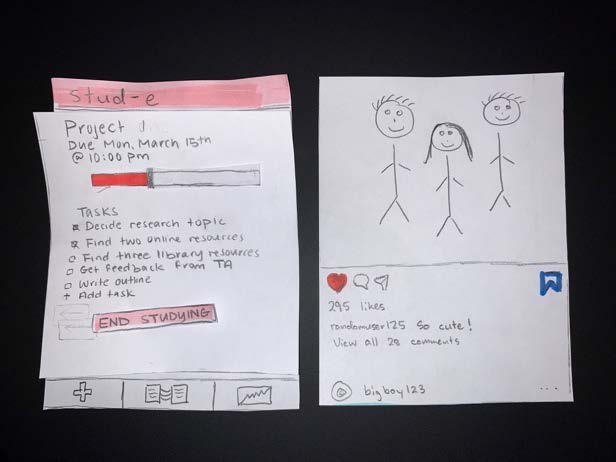 Stud-e
Project
Due Mon, March 15th
@ 10:00 pm
Tasks
Decide research topic
Find two online resources
Find three library resources
Get feedback from TA
Write outline
+ Add task
END STUDYING
295 likes
randomuser125 So cute!
View all 28 comments
bigboy123
...